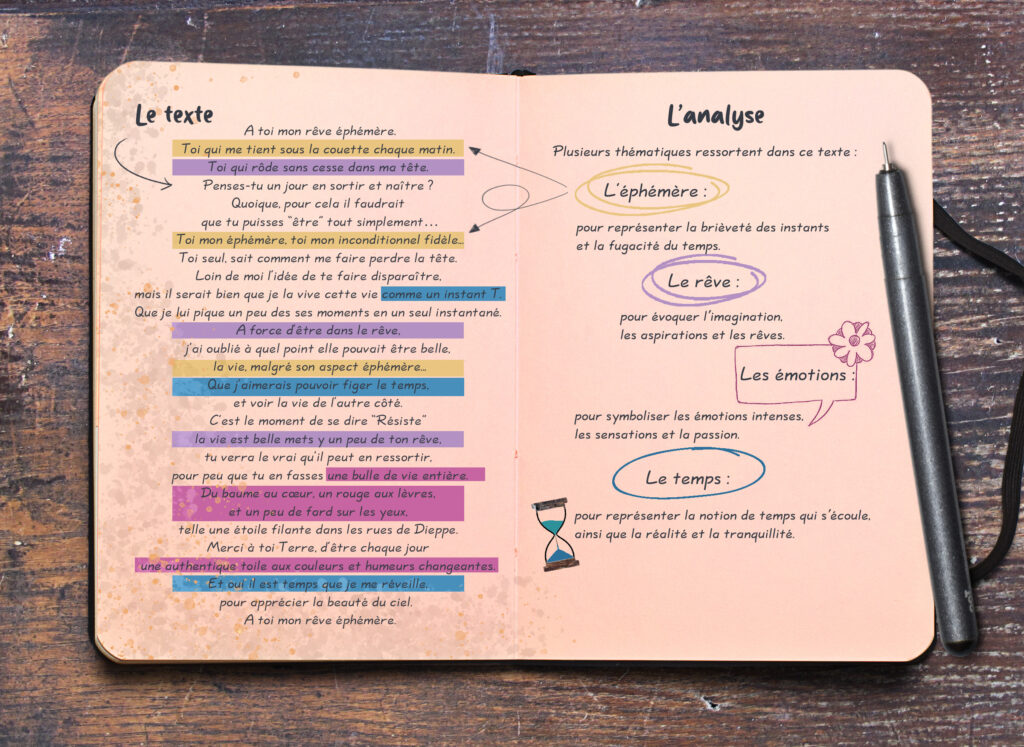 Le texte
A toi mon rêve éphémère.
Toi qui me tient sous la couette chaque matin.
Toi qui rôde sans cesse dans ma tête.
Penses-tu un jour en sortir et naître ?
Quoique, pour cela il faudrait
que tu puisses "être" tout simplement...
Toi mon éphémère, toi mon inconditionnel fidèle...
Toi seul, sait comment me faire perdre la tête.
Loin de moi l'idée de te faire disparaître,
mais il serait bien que je la vive cette vie comme un instant T.
Que je lui pique un peu des ses moments en un seul instantané.
A force d'être dans le rêve,
j'ai oublié à quel point elle pouvait être belle,
la vie, malgré son aspect éphémère...
Que j'aimerais pouvoir figer le temps,
et voir la vie de l'autre côté.
C'est le moment de se dire "Résiste"
la vie est belle mets y un peu de ton rêve,
tu verra le vrai qu'il peut en ressortir,
pour peu que tu en fasses une bulle de vie entière.
Du baume au cœur, un rouge aux lèvres,
et un peu de ford sur les yeux,
telle une étoile filante dans les rues de Dieppe.
Merci à toi Terre, d'être chaque jour
une authentique toile aux couleurs et humeurs changeantes.
Et oui il est temps que je me réveille,
pour apprécier la beauté du ciel.
A toi mon rêve éphémère.
L'analyse
Plusieurs thématiques ressortent dans ce texte :
L'éphémère :
pour représenter la brièveté des instants
et la fugacité du temps.
Le rêve :
pour évoquer l'imagination,
les aspirations et les rêves.
Les émotions :
pour symboliser les émotions intenses,
les sensations et la passion.
Le temps :
pour représenter la notion de temps qui s'écoule,
ainsi que la réalité et la tranquillité.